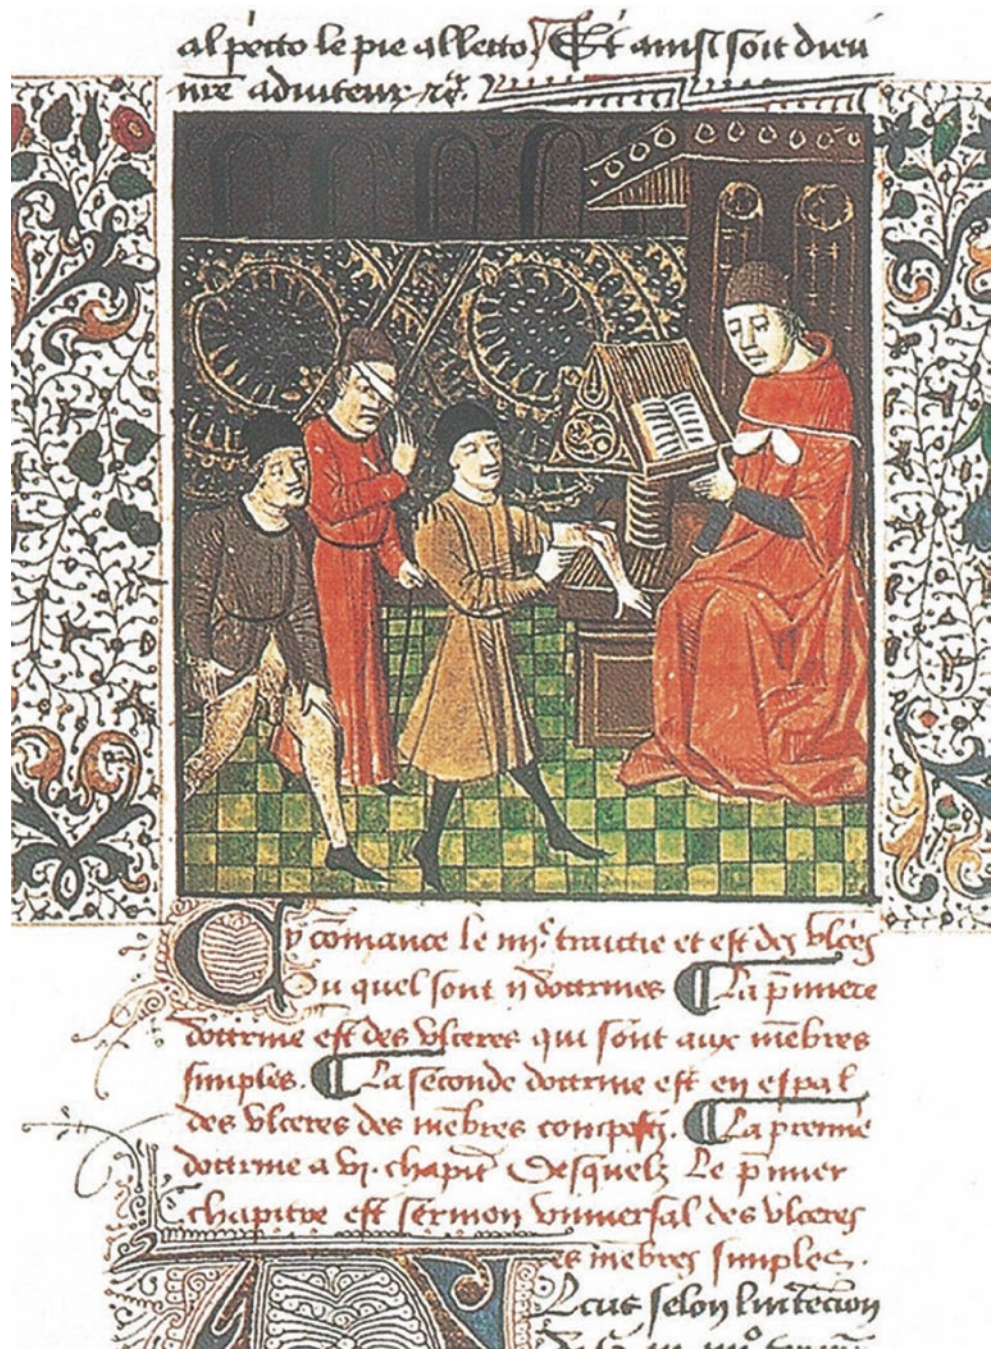 al pecto le pie al lecto Et ainsi soit dieu
nr̄e aduiteur
Cy comance le iiijᵉ traictie et est des vlceres
Ou quel sont ij doctrines ¶ La p̄miere
doctrine est des vlceres qui sont aux mēbres
simples. ¶ La seconde doctrine est en esp̄al
des vlceres des mēbres compostz. ¶ La premie
doctrine a vj. chapit̄ Desquelz Le p̄mier
chapitre est sermon vniuersal des vlceres
es mēbres simples.
lcus selon lintēcion